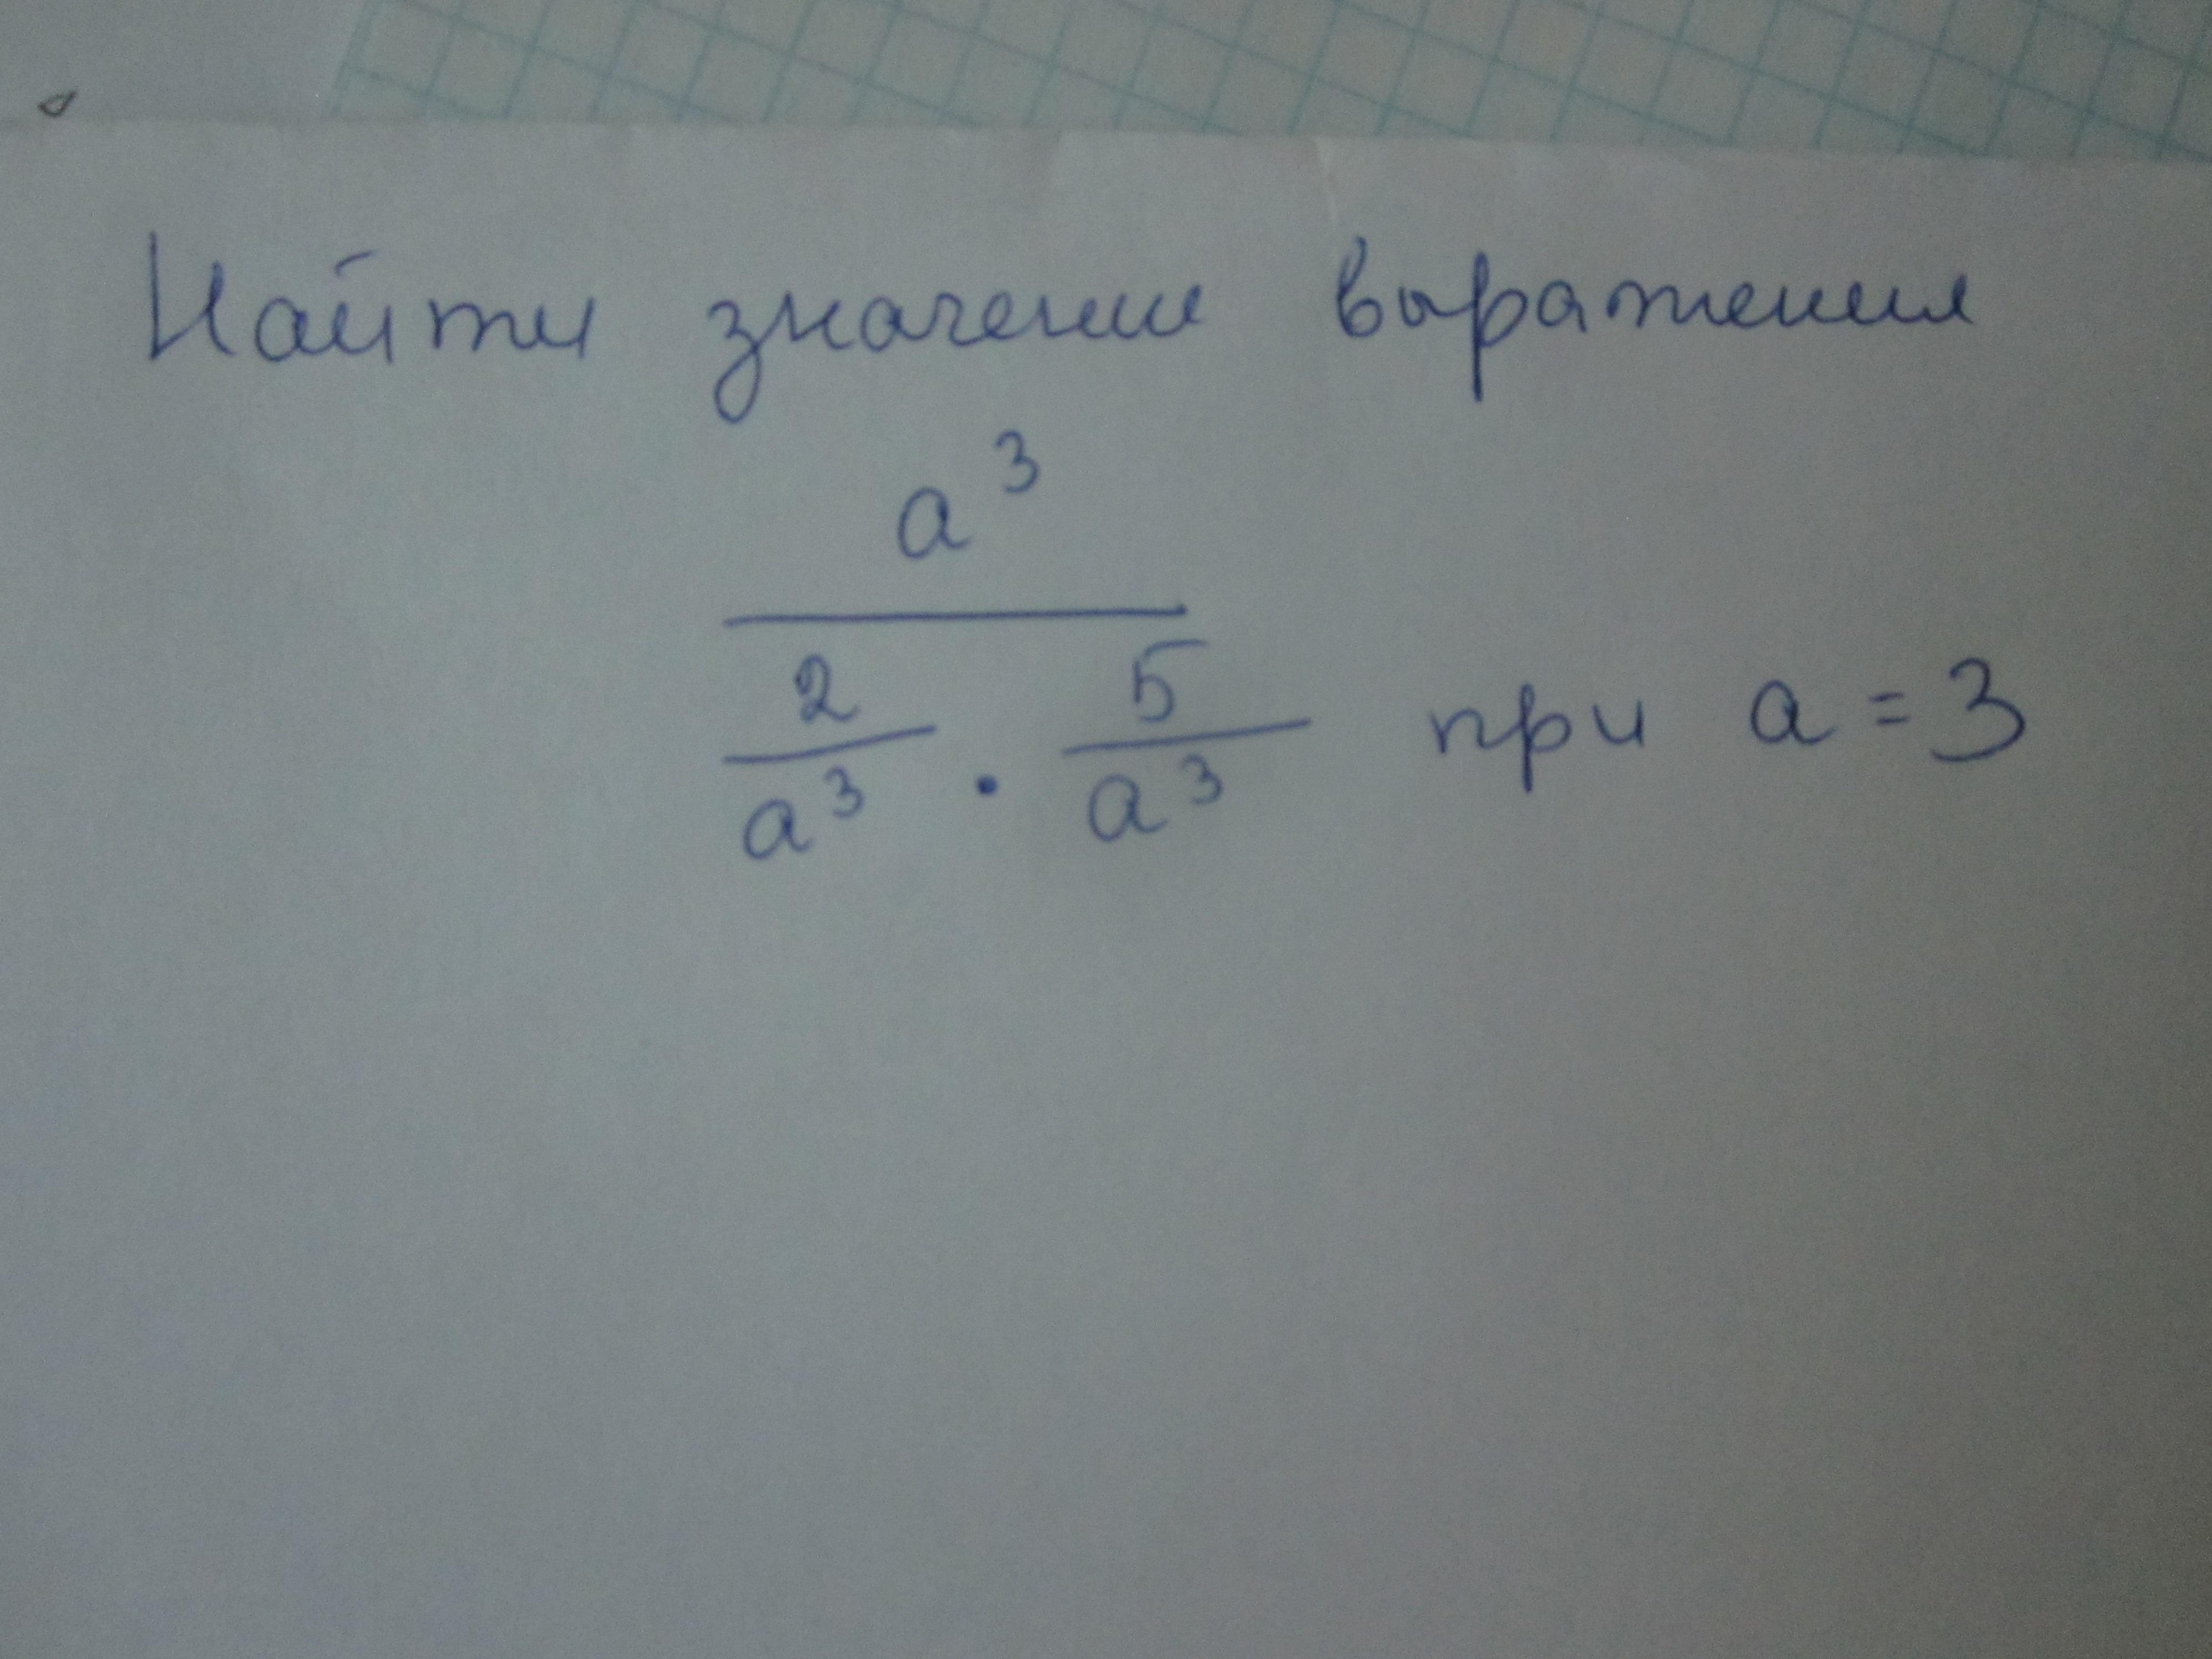 Найти значение выражения
a³
2 5
a³ · a³ при a = 3